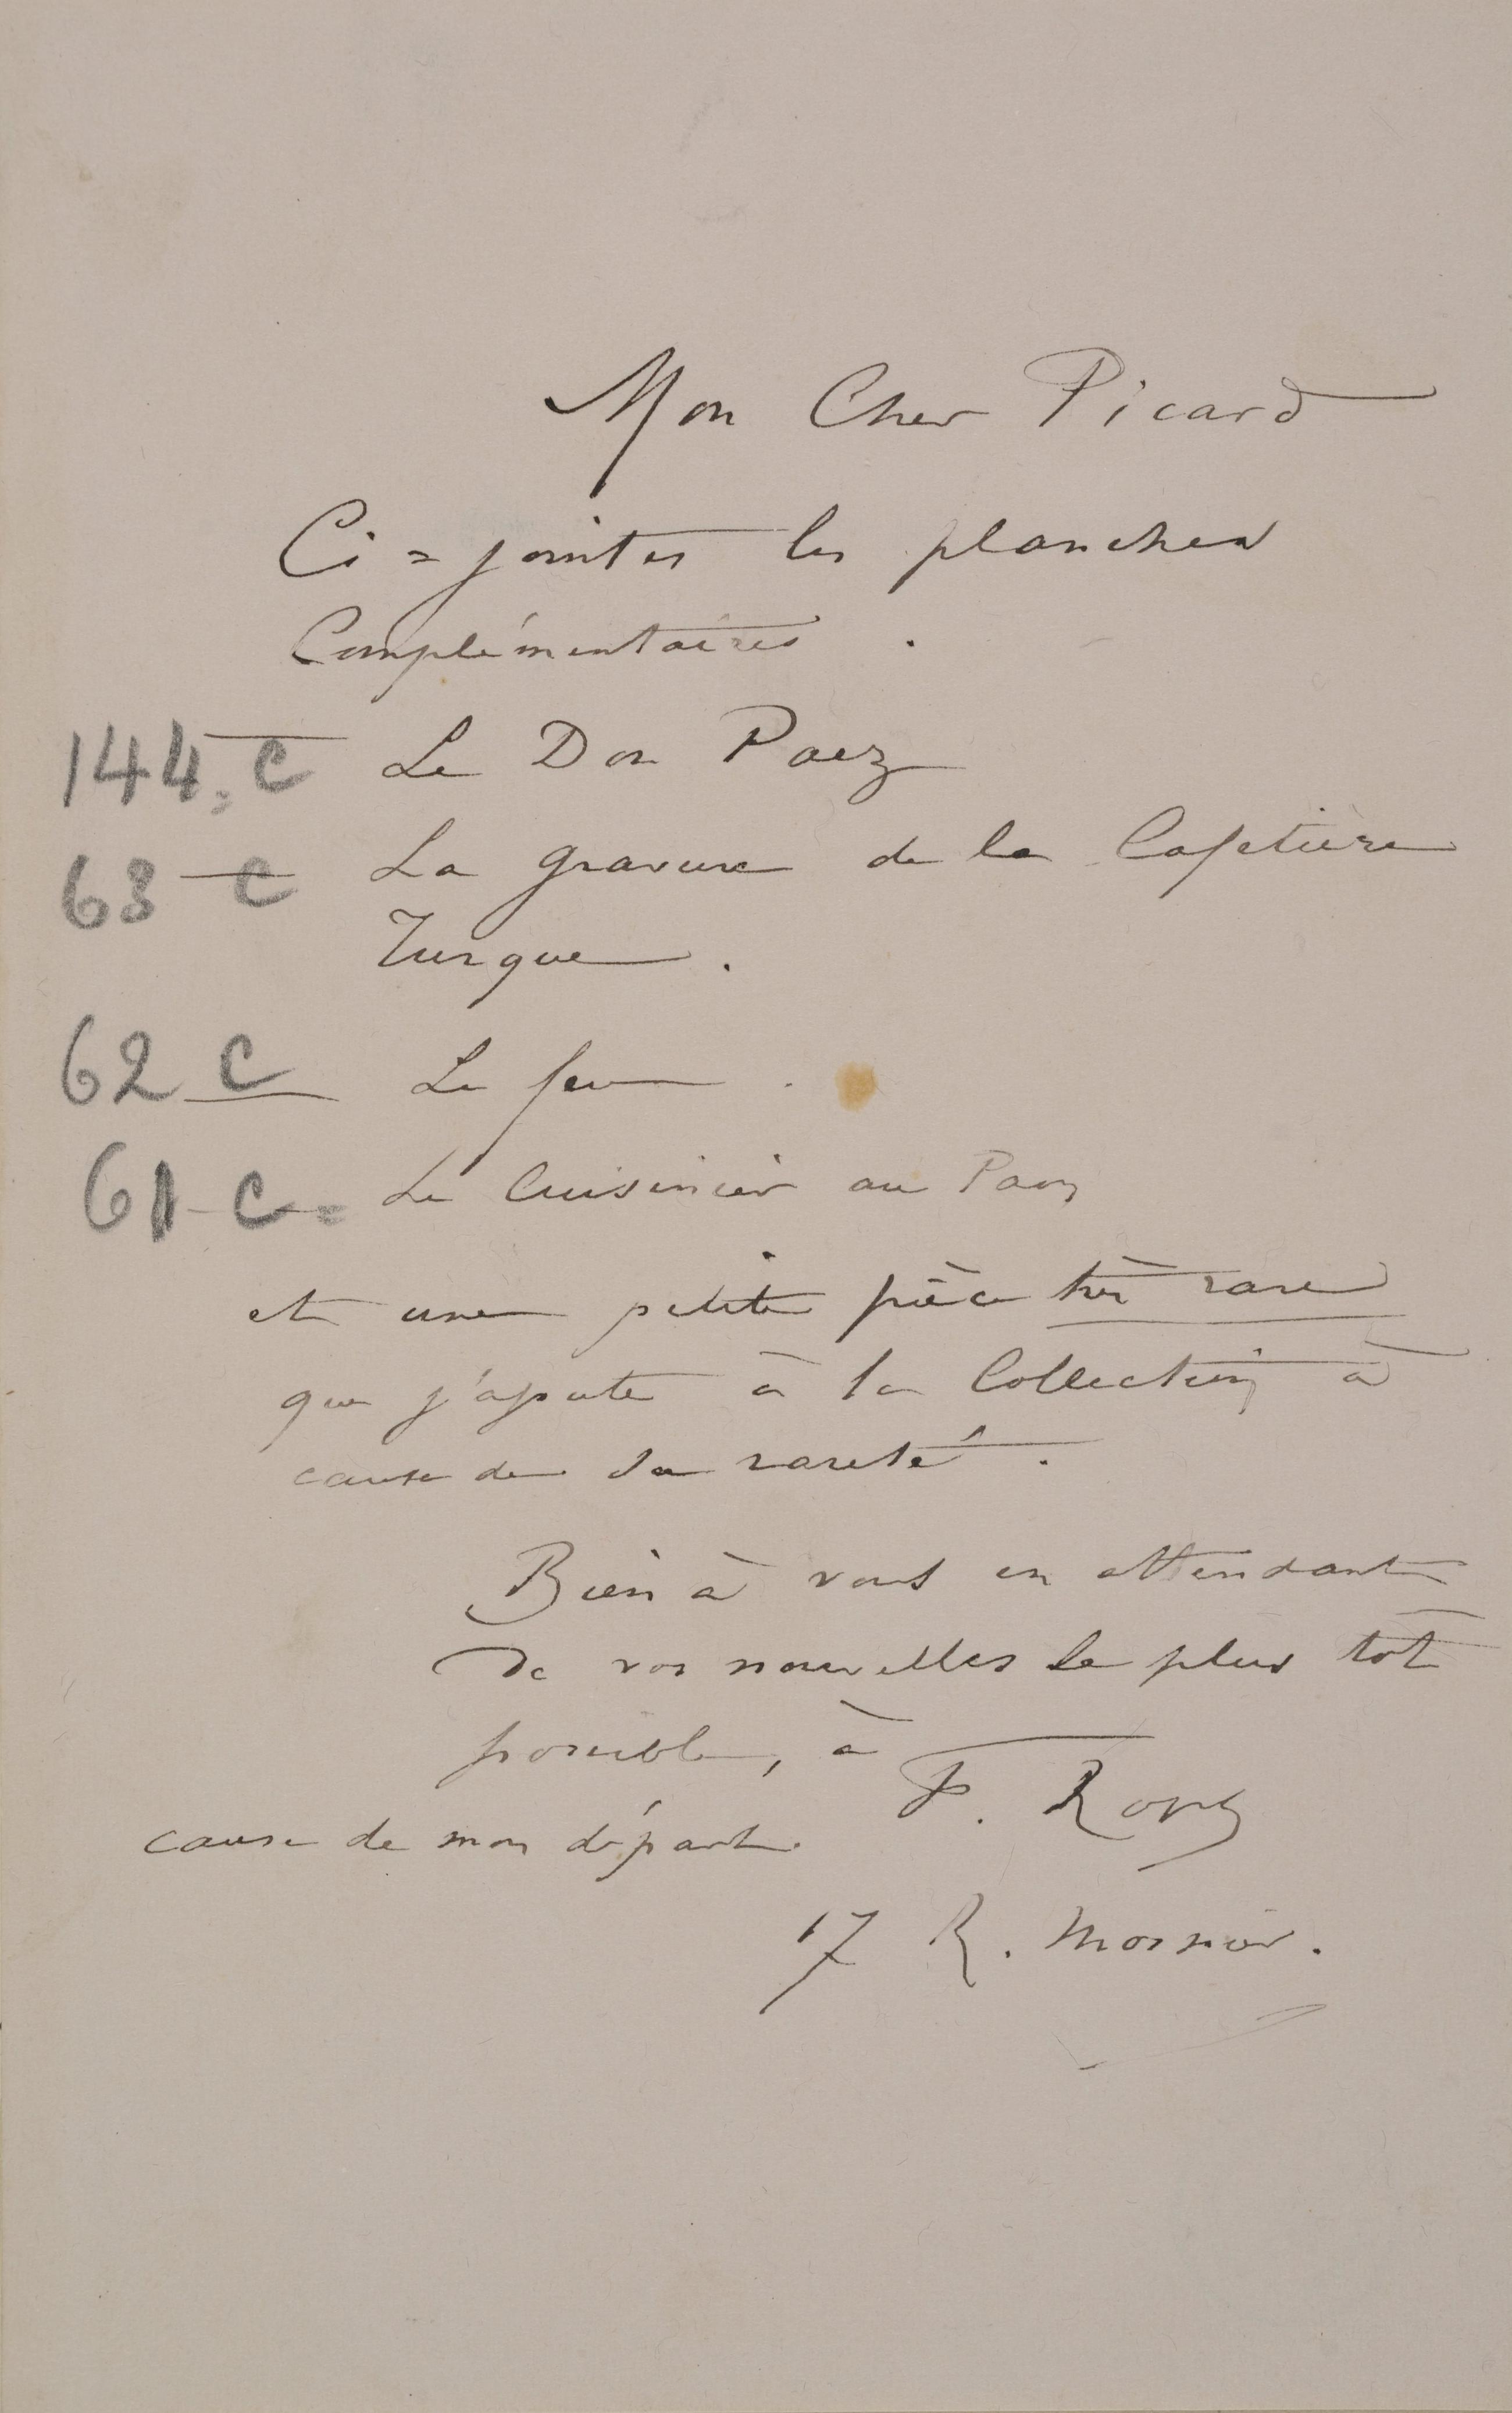 Mon Cher Picard
Ci = jointes les planches
Complémentaires .
144. C Le Don Paez
63 C La gravure de la Cafetière
Turque .
62 C Le feu .
61 C = Le Cuisinier au Paon
et une petite pièce très rare
que j'ajoute à la Collection à
cause de sa rareté .
Bien à vous en attendant
de vos nouvelles le plus tôt
possible, à
cause de mon départ.
F. Rops
17 R. Mosnier.